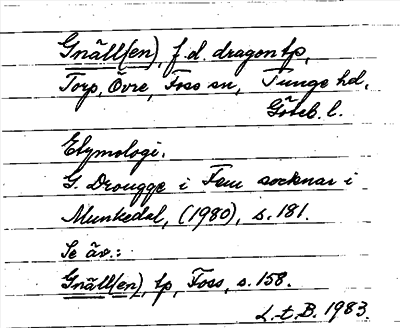 Gnäll(en), f.d. dragontp,
Torp, Övre, Foss sn, Tunge hd,
Göteb. l.
Etymologi.
G. Drougge i Fem socknar i
Munkedal, (1980), s. 181.
Se äv.:
Gnäll(en), tp, Foss, s. 158.
L.t.B. 1983.